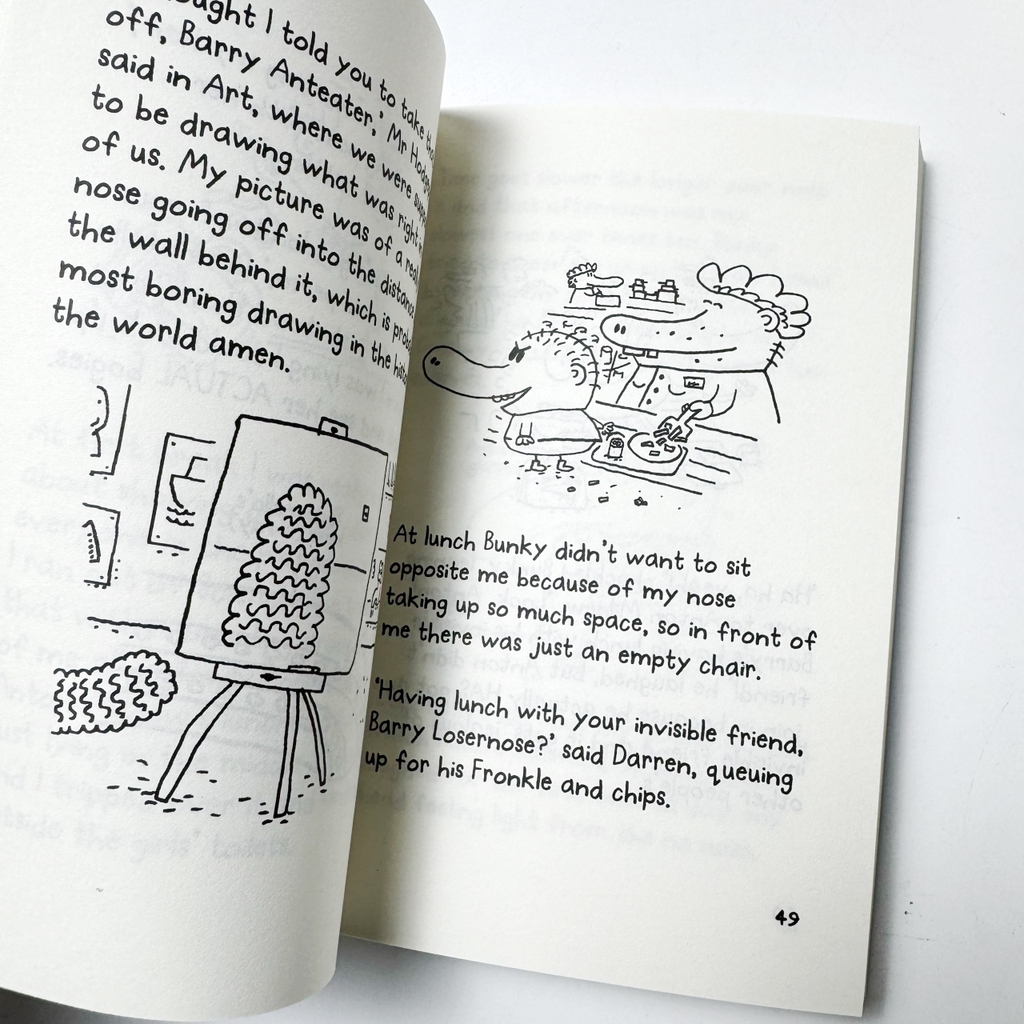 I told you to take
off, Barry Anteater,' Mr
said in Art, where we were
to be drawing what was right
of us. My picture was of a
nose going off into the
the wall behind it, which is
most boring drawing in the
the world amen.
At lunch Bunky didn't want to sit
opposite me because of my nose
taking up so much space, so in front of
me there was just an empty chair.
'Having lunch with your invisible friend,
Barry Losernose?' said Darren, queuing
up for his Fronkle and chips.
49